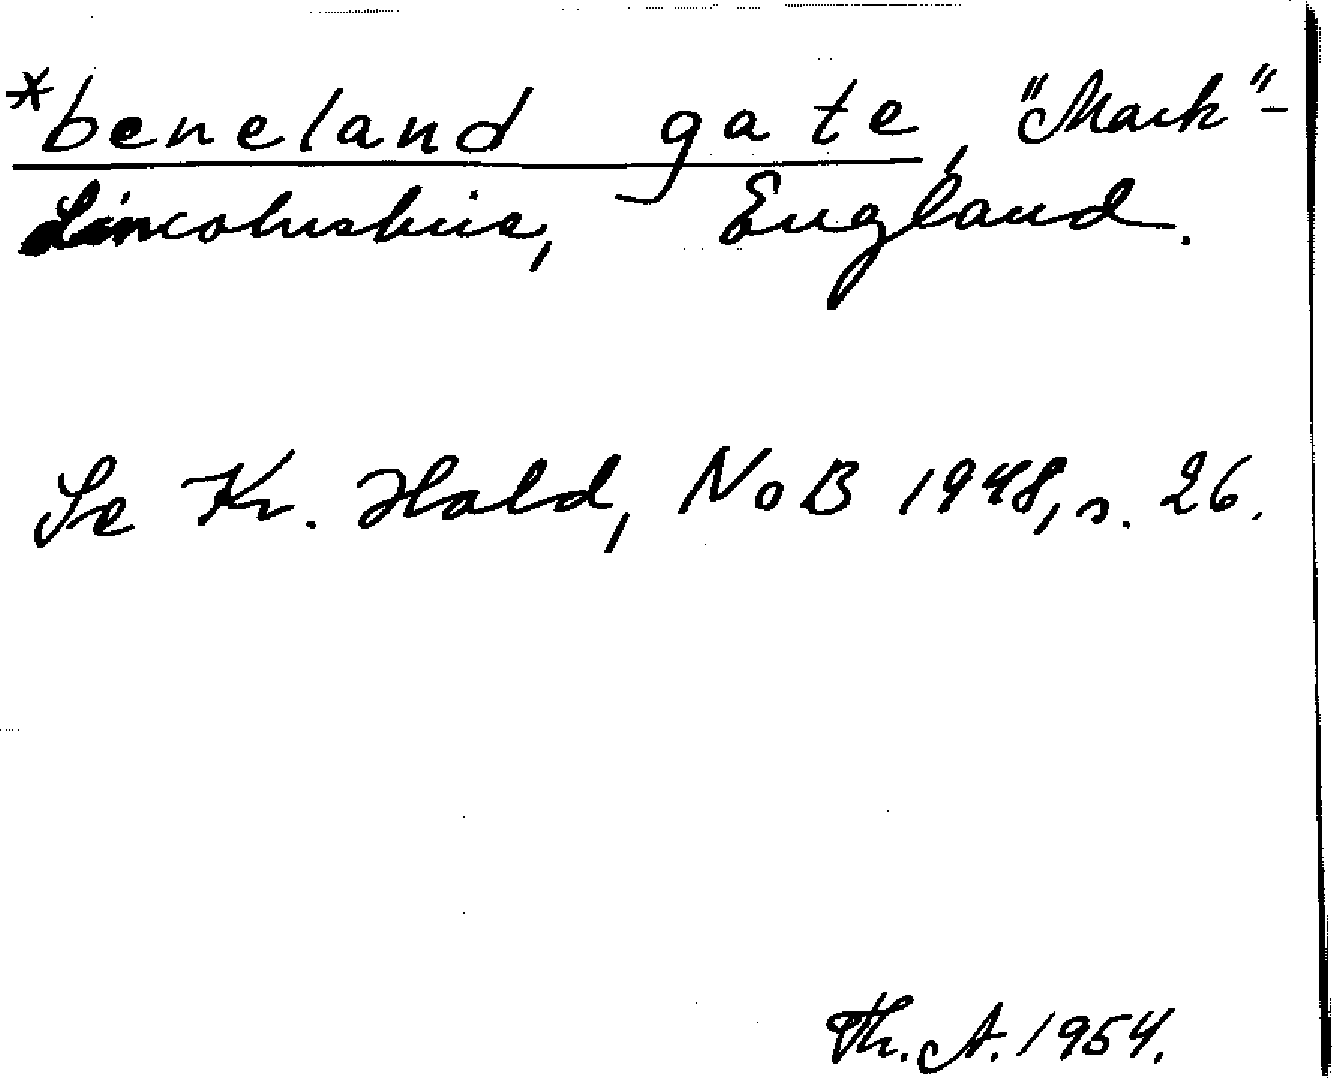 *beneland gate, "Mark"-
Lincolnshire, England.
Se Kr. Hald, NoB 1948, s. 26.
Th. A. 1954.